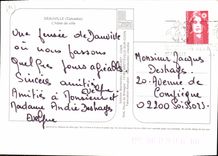 DEAUVILLE (Calvados)
L'Hôtel de ville
Une pensée de Deauville
où nous passons
quelques jours agréables
Sincères amitiés
Amitiés à Monsieur et
Madame André Deshayes
Monsieur Jacques
Deshayes
20 Avenue de
Compiègne
02200 Soissons